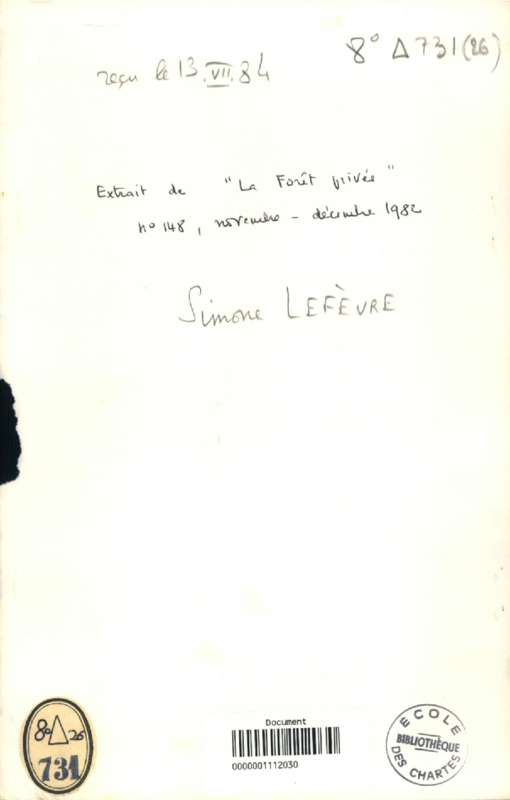 8° Δ 731 (26)
reçu le 13.VII.84
Extrait de "La Forêt privée"
n° 148, novembre - décembre 1982
Simone LEFÈVRE
8° Δ 26
731
Document
0000001112030
ÉCOLE
BIBLIOTHÈQUE
DES CHARTES